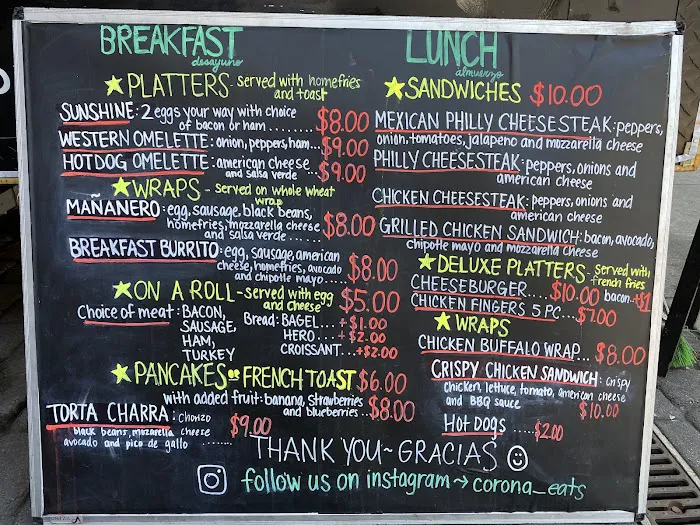 BREAKFAST
desayuno
★PLATTERS- served with homefries
and toast
SUNSHINE: 2 eggs your way with choice
of bacon or ham........ $8.00
WESTERN OMELETTE: onion, peppers, ham... $9.00
HOTDOG OMELETTE: american cheese
and salsa verde... $9.00
★WRAPS- served on whole wheat
wrap
MAÑANERO: egg, sausage, black beans,
homefries, mozzarella cheese
and salsa verde...... $8.00
BREAKFAST BURRITO: egg, sausage, american
cheese, homefries, avocado
and chipotle mayo..... $8.00
★ON A ROLL-served with egg
and cheese $5.00
Choice of meat: BACON,
SAUSAGE,
HAM,
TURKEY
Bread: BAGEL...+$1.00
HERO...+$2.00
CROISSANT...+$2.00
★PANCAKES or FRENCH TOAST $6.00
with added fruit: banana, strawberries
and blueberries.. $8.00
TORTA CHARRA: Chorizo
black beans, mozarella cheese
avocado and pico de gallo ....... $9.00
LUNCH
almuerzo
★SANDWICHES $10.00
MEXICAN PHILLY CHEESESTEAK: peppers,
onion, tomatoes, jalapeno and mozzarella cheese
PHILLY CHEESESTEAK: peppers, onions and
american cheese
CHICKEN CHEESESTEAK: peppers, onions and
american cheese
GRILLED CHICKEN SANDWICH: bacon, avocado,
chipotle mayo and mozzarella cheese
★DELUXE PLATTERS- served with
french fries
CHEESEBURGER.... $10.00 bacon+$1
CHICKEN FINGERS 5 PC... $7.00
★WRAPS
CHICKEN BUFFALO WRAP... $8.00
CRISPY CHICKEN SANDWICH: Crispy
chicken, lettuce, tomato, american cheese
and BBQ sauce $10.00
HOT DOGS .... $2.00
THANK YOU~GRACIAS
follow us on instagram→corona_eats